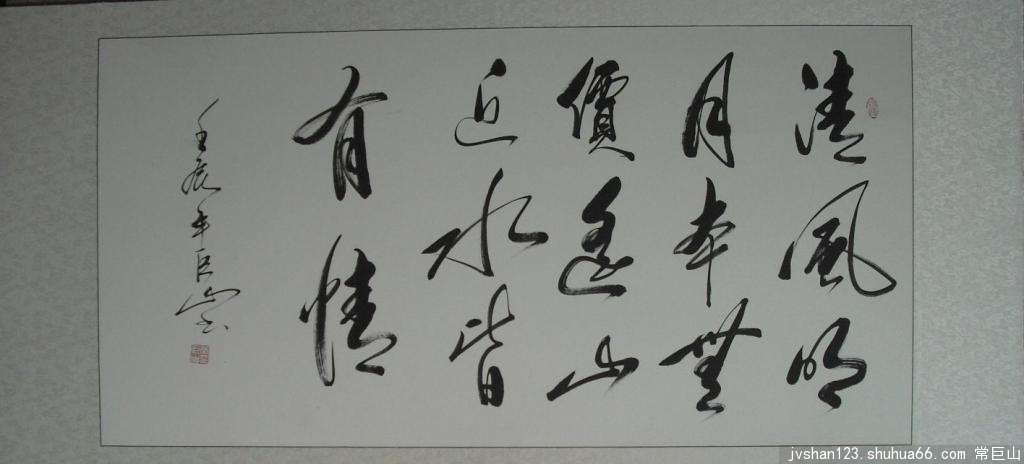 清風明
月本無
價遙山
近水皆
有情
壬辰年巨山书
jvshan123.shuhua66.com 常巨山